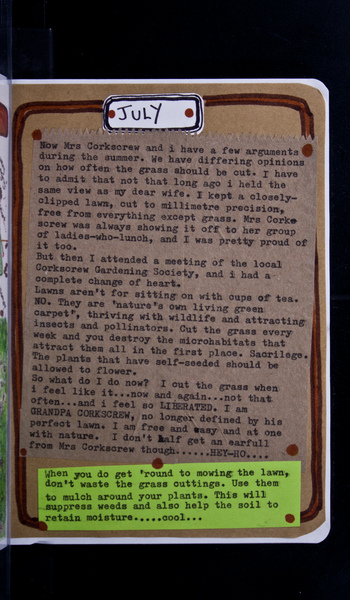 JULY
Now Mrs Corkscrew and i have a few arguments
during the summer. We have differing opinions
on how often the grass should be cut. I have
to admit that not that long ago i held the
same view as my dear wife. I kept a closely-
clipped lawn, cut to millimetre precision,
free from everything except grass. Mrs Cork=
screw was always showing it off to her group
of ladies-who-lunch, and I was pretty proud of
it too.
But then I attended a meeting of the local
Corkscrew Gardening Society, and i had a
complete change of heart.
Lawns aren't for sitting on with cups of tea.
NO. They are 'nature's own living green
carpet", thriving with wildlife and attracting
insects and pollinators. Cut the grass every
week and you destroy the microhabitats that
attract them all in the first place. Sacrilege.
The plants that have self-seeded should be
allowed to flower.
So what do I do now? I cut the grass when
i feel like it...now and again...not that
often...and i feel so LIBERATED. I am
GRANDPA CORKSCREW, no longer defined by his
perfect lawn. I am free and easy and at one
with nature. I don't half get an earfull
from Mrs Corkscrew though......HEY-HO....
When you do get 'round to mowing the lawn,
don't waste the grass cuttings. Use them
to mulch around your plants. This will
suppress weeds and also help the soil to
retain moisture.....cool...